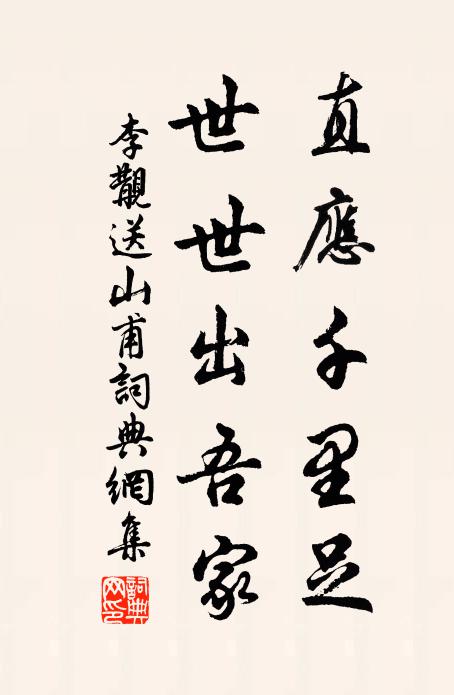 直應千里足
世世出吾家
李觀送山甫詞典網集
詞典
网印